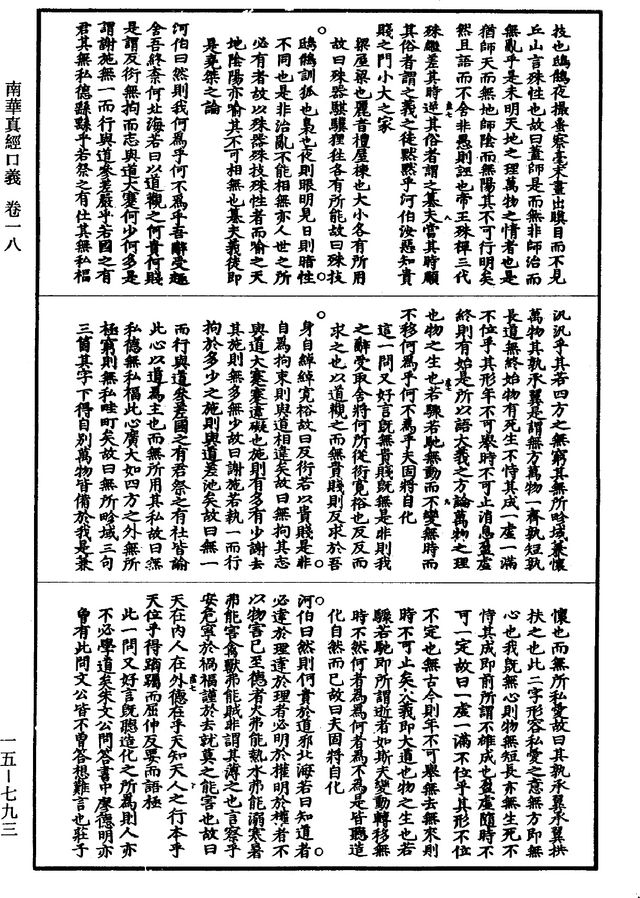 技也鴟鵂夜撮蚤察毫末晝出瞋目而不見
丘山言殊性也故曰蓋師是而無非師治而
無亂乎是未明天地之理萬物之情者也是
猶師天而無地師陰而無陽其不可行明矣
然且語而不舍非愚則誣也帝王殊禪三代
殊繼差其時逆其俗者謂之篡夫當其時順
其俗者謂之義之徒默默乎河伯汝惡知貴
賤之門小大之家
梁屋梁也麗音禮屋棟也大小各有所用
故曰殊器騏驥狸狌各有所能故曰殊技
鴟鵂訓狐也梟也夜則眼明見日則暗性
不同也是非治亂不能相無亦人世之所
必有者故以殊器殊技殊性者而喻之天
地陰陽亦喻其不可相無也篡夫義徒即
是堯桀之論
河伯曰然則我何爲乎何不爲乎吾辭受趣
舍吾終奈何北海若曰以道觀之何貴何賤
是謂反衍無拘而志與道大蹇何少何多是
謂謝施無一而行與道參差嚴乎若國之有
君其無私德繇繇乎若祭之有社其無私福
汎汎乎其若四方之無窮其無所畛域兼懷
萬物其孰承翼是謂無方萬物一齊孰短孰
長道無終始物有死生不恃其成一虛一滿
不位乎其形年不可舉時不可止消息盈虛
終則有始是所以語大義之方論萬物之理
也物之生也若驟若馳無動而不變無時而
不移何爲乎何不爲乎夫固將自化
這一問又好言既無貴賤既無是非則我
之辭受取舍將何所從衍寬裕也反反而
求之也以道觀之而無貴賤則反求於吾
身自綽綽寬裕故曰反衍若以貴賤是非
自爲拘束則與道相違矣故曰無拘其志
與道大蹇蹇違礙也施則有多有少謝去
其施則無多無少故曰謝施若執一而行
拘於多少之施則與道差池矣故曰無一
而行與道參差國之有君祭之有社皆論
此心以道爲主也而無所用其私故曰無
私德無私福此心廣大如四方之外無所
極窮則無私畦町矣故曰無所畛域三句
三箇其字下得自別萬物皆備於我是兼
懷也而無所私愛故曰其孰承翼承翼拱
扶之也此二字形容私愛之意無方即無
心也我既無心則物無短長亦無生死不
恃其成即前所謂不雄成也盈虛隨時不
可一定故曰一虛一滿不位乎其形不位
不定也無古今則年不可舉無去無來則
時不可止矣大義即大道也物之生也若
驟若馳即所謂逝者如斯夫變動轉移無
時不然何者爲爲何者爲不爲是皆聽造
化自然而已故曰夫固將自化
河伯曰然則何貴於道邪北海若曰知道者
必達於理達於理者必明於權明於權者不
以物害己至德者火弗能熱水弗能溺寒暑
弗能害禽獸弗能賊非謂其薄之也言察乎
安危寧於禍福謹於去就莫之能害也故曰
天在內人在外德在乎天知天人之行本乎
天位乎得蹢䠱而屈伸反要而語極
此一問又好言既聽造化之所爲則人亦
不必學道矣朱文公問答書中廖德明亦
曾有此問文公皆不曾答想難言也莊子
南華真經口義 卷一八
一五—七九三